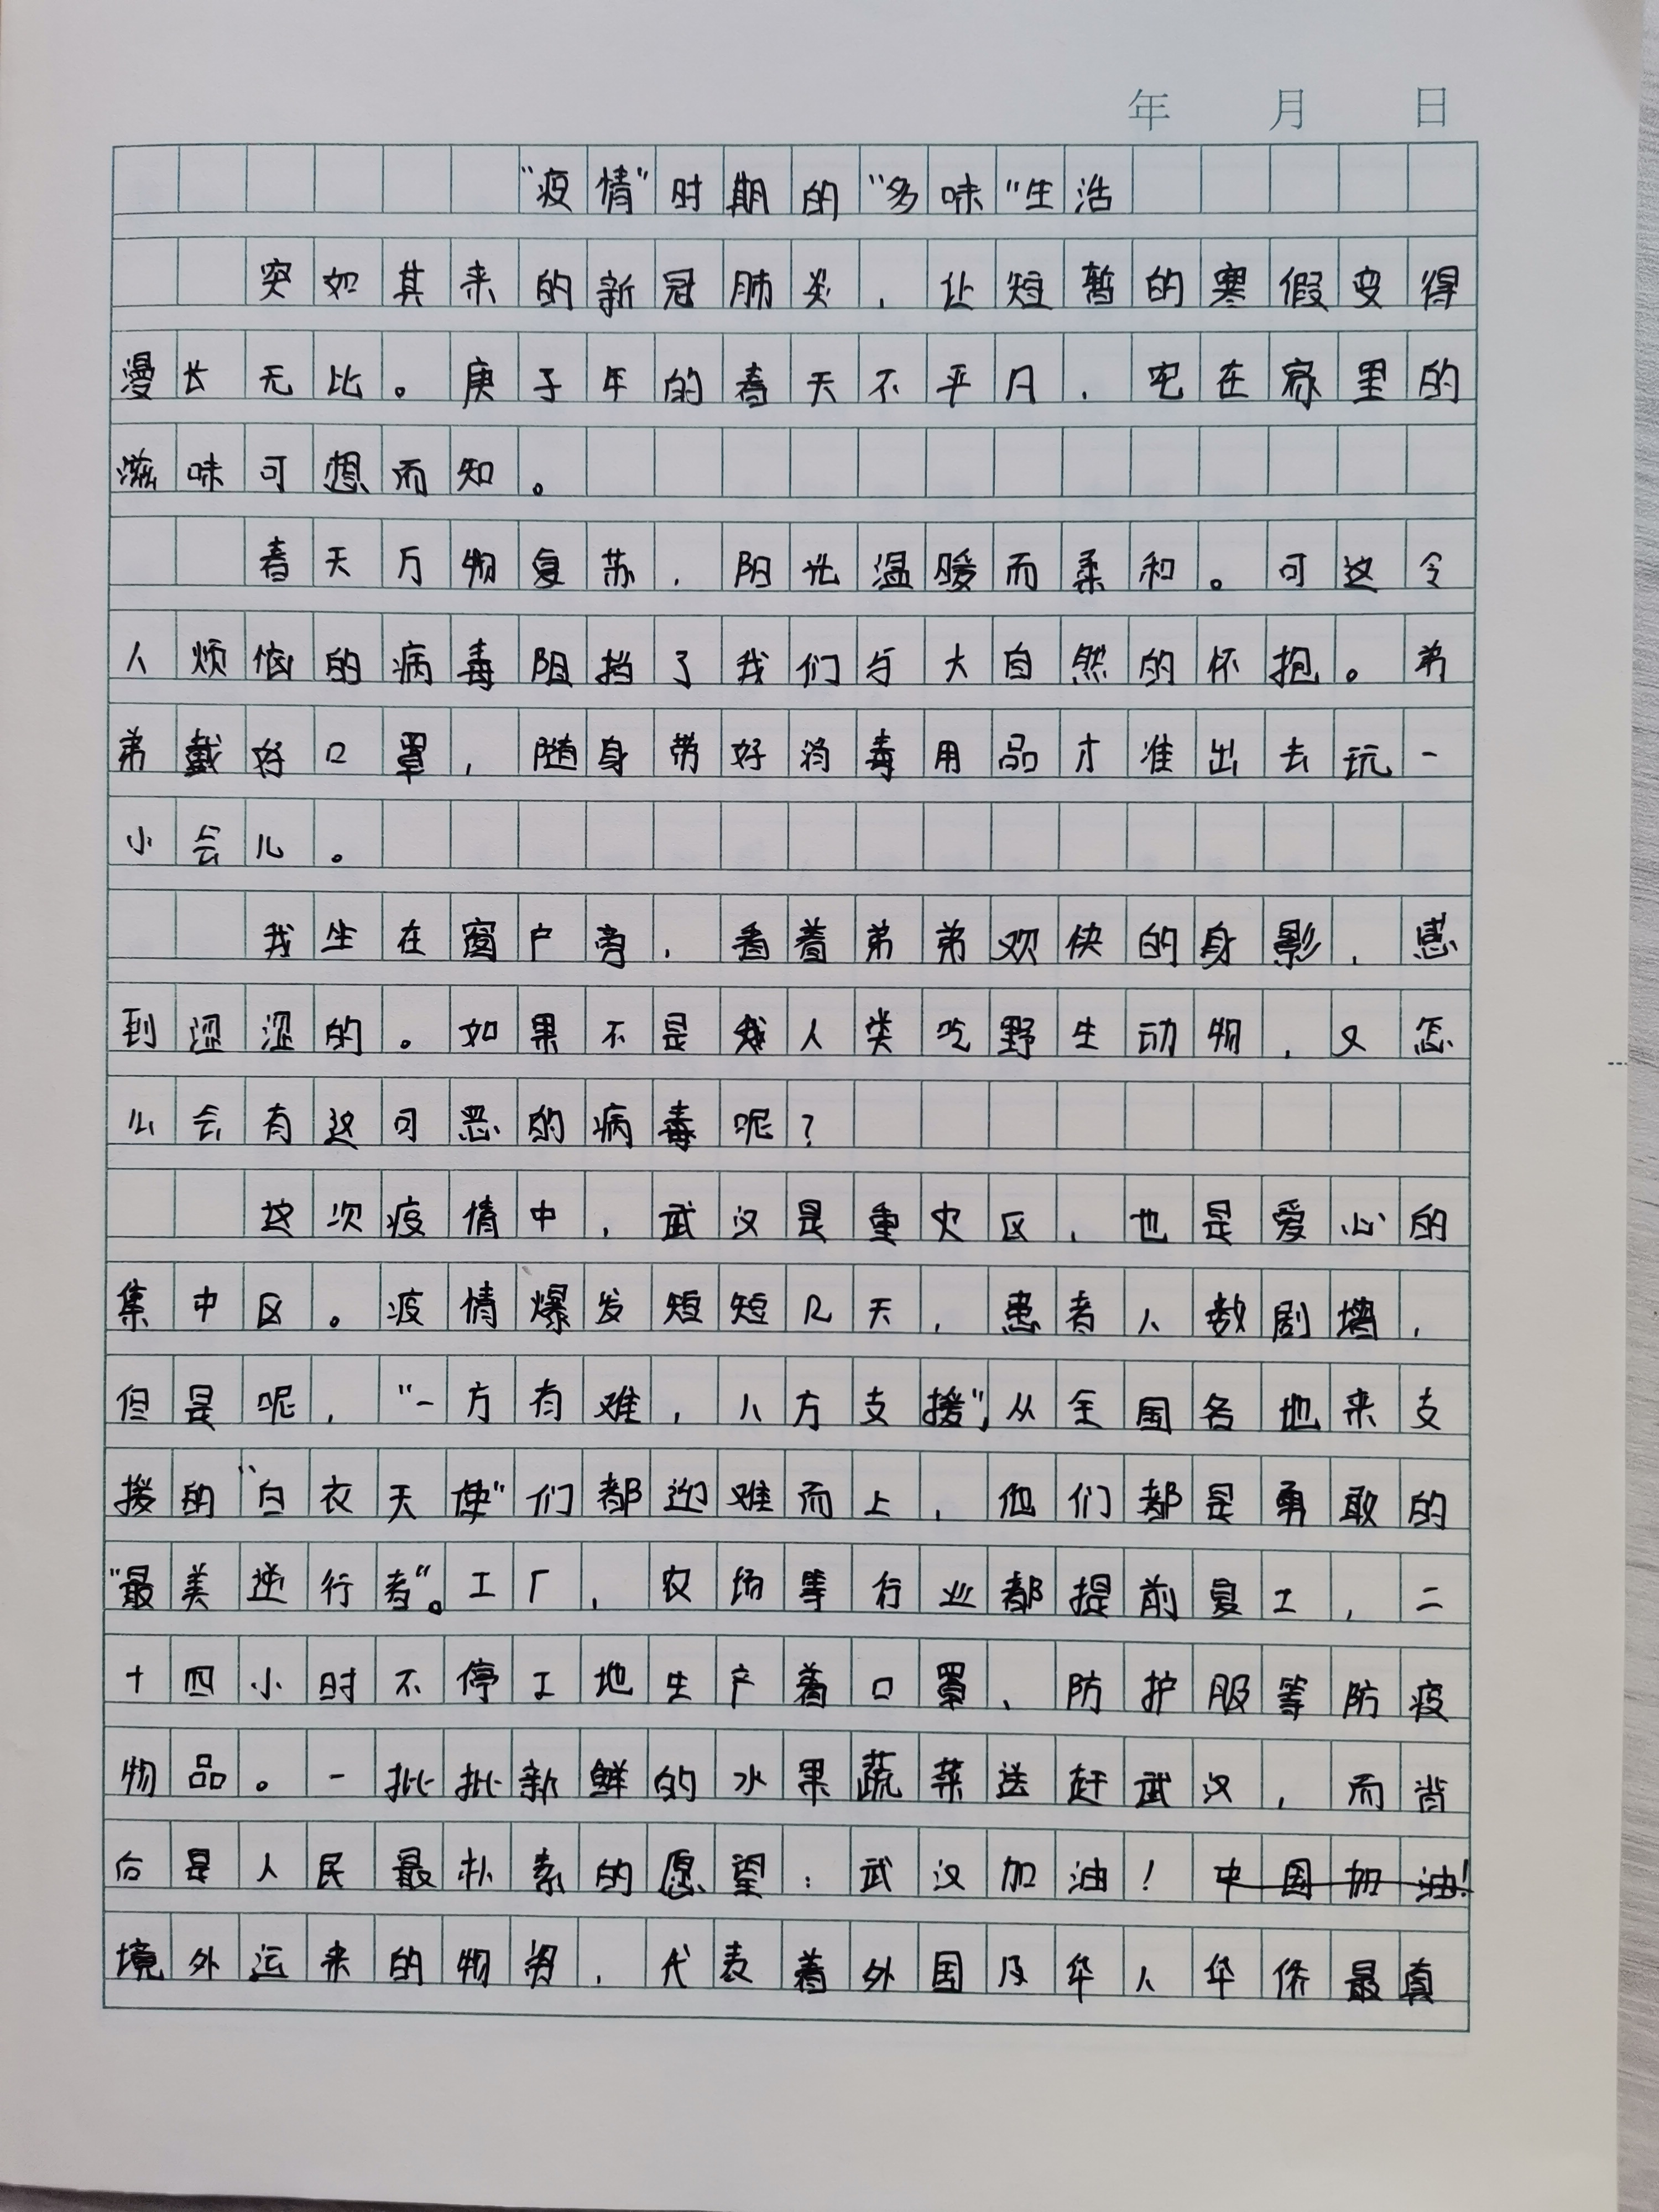 年 月 日
"疫情"时期的"多味"生活
突如其来的新冠肺炎，让短暂的寒假变得
漫长无比。庚子年的春天不平凡，宅在家里的
滋味可想而知。
春天万物复苏，阳光温暖而柔和。可这令
人烦恼的病毒阻挡了我们与大自然的怀抱。弟
弟戴好口罩，随身带好消毒用品才准出去玩一
小会儿。
我坐在窗户旁，看着弟弟欢快的身影，感
到涩涩的。如果不是我人类吃野生动物，又怎
么会有这可恶的病毒呢？
这次疫情中，武汉是重灾区，也是爱心的
集中区。疫情爆发短短几天，患者人数剧增，
但是呢，"一方有难，八方支援"，从全国各地来支
援的"白衣天使"们都迎难而上，他们都是勇敢的
"最美逆行者"。工厂，农场等行业都提前复工，二
十四小时不停工地生产着口罩、防护服等防疫
物品。一批批新鲜的水果蔬菜送赶武汉，而背
后是人民最朴素的愿望：武汉加油！中国加油！
境外运来的物资，代表着外国及华人华侨最真